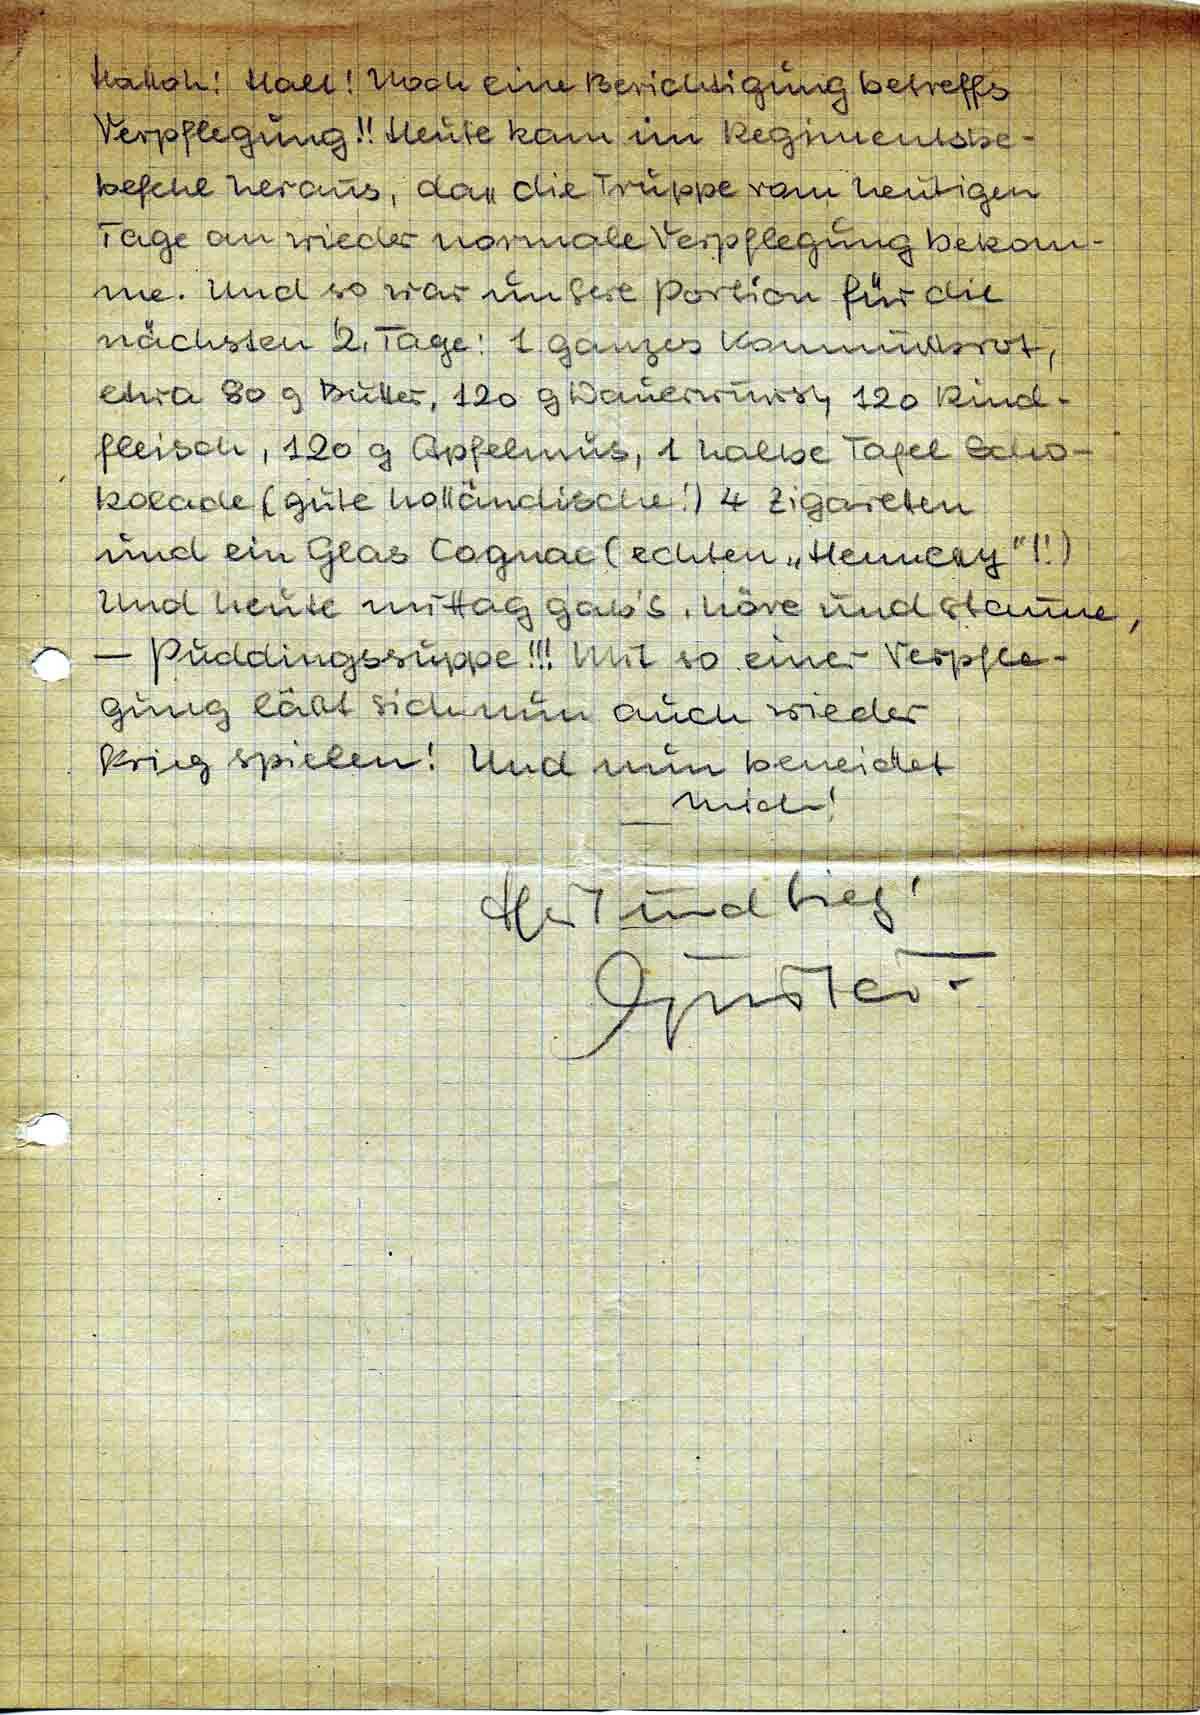 Halloh! Halt! Noch eine Berichtigung betreffs
Verpflegung!! Heute kam im Regimentsbe-
befehl heraus, daß die Truppe vom heutigen
Tage an wieder normale Verpflegung bekom-
me. Und so war unsere Portion für die
nächsten 2 Tage: 1 ganzes Kommißbrot,
etwa 80 g Butter, 120 g Dauerwurst, 120 Rind-
fleisch, 120 g Apfelmus, 1 halbe Tafel Scho-
kolade (gute holländische!) 4 Zigaretten
und ein Glas Cognac (echten „Hennessy"!!)
Und heute mittag gab's, höre und staune,
— Puddingssuppe!!! Mit so einer Verpfle-
gung läßt sich nun auch wieder
Krieg spielen! Und nun beneidet
mich!
Heil und Sieg!